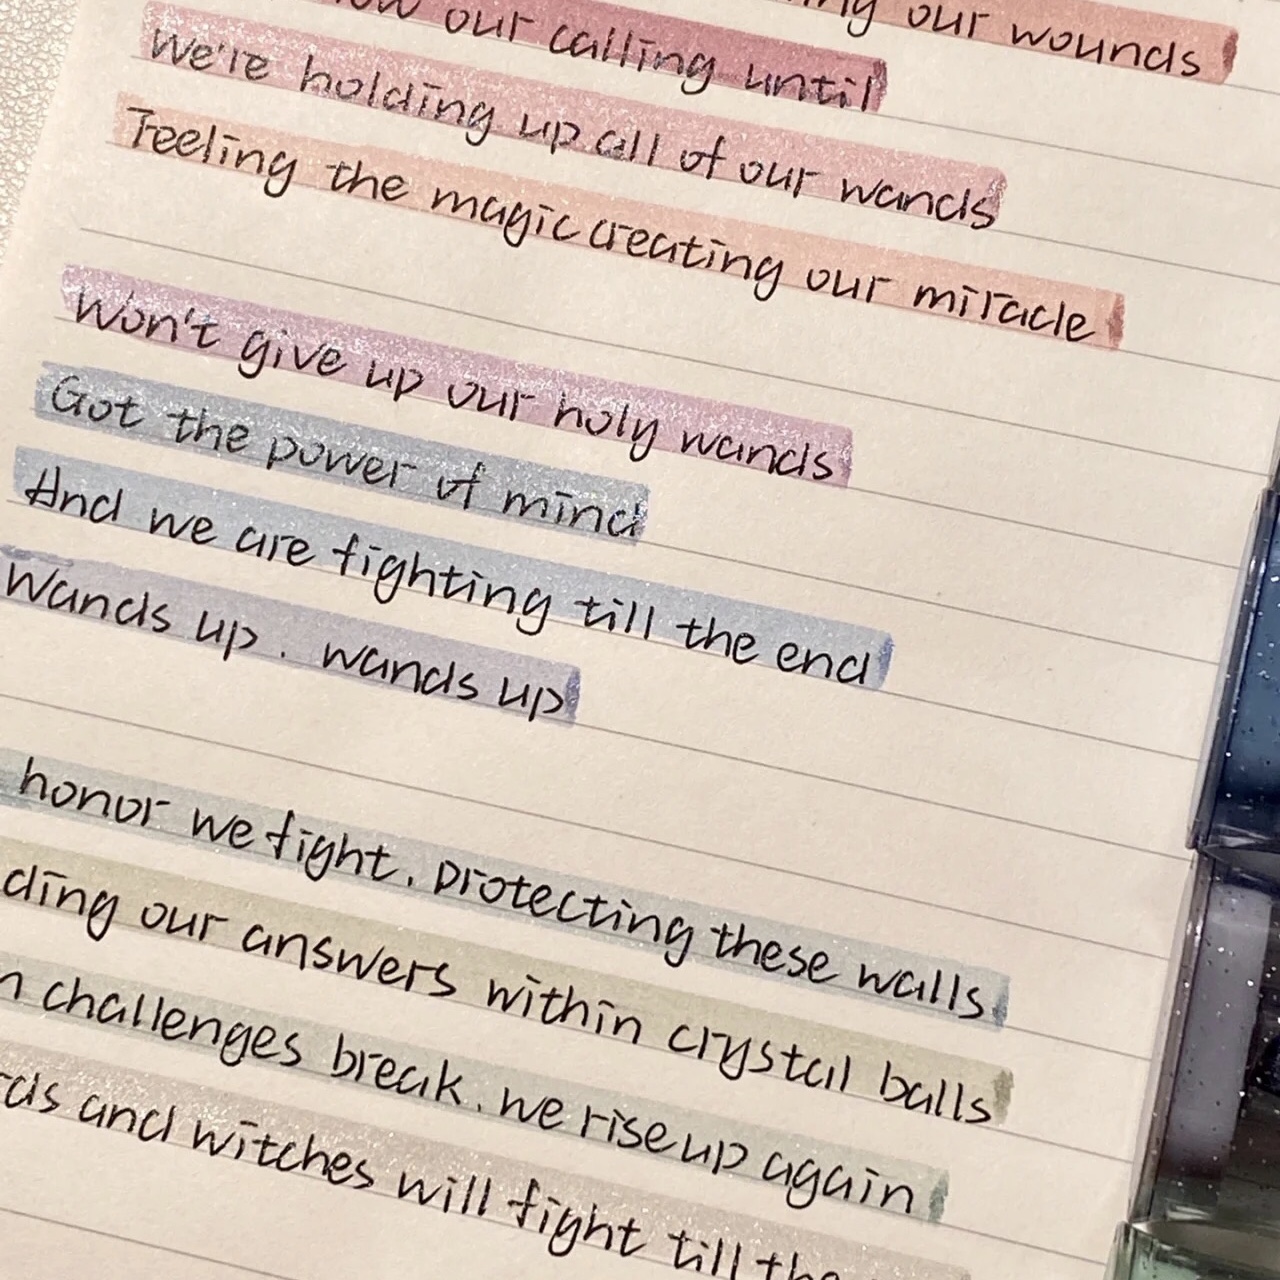 our wounds
our calling until
We're holding up all of our wands
Feeling the magic creating our miracle
Won't give up our holy wands
Got the power of mind
And we are fighting till the end
Wands up. wands up
honor we fight. protecting these walls
our answers within crystal balls
challenges break. we rise up again
and witches will fight till the